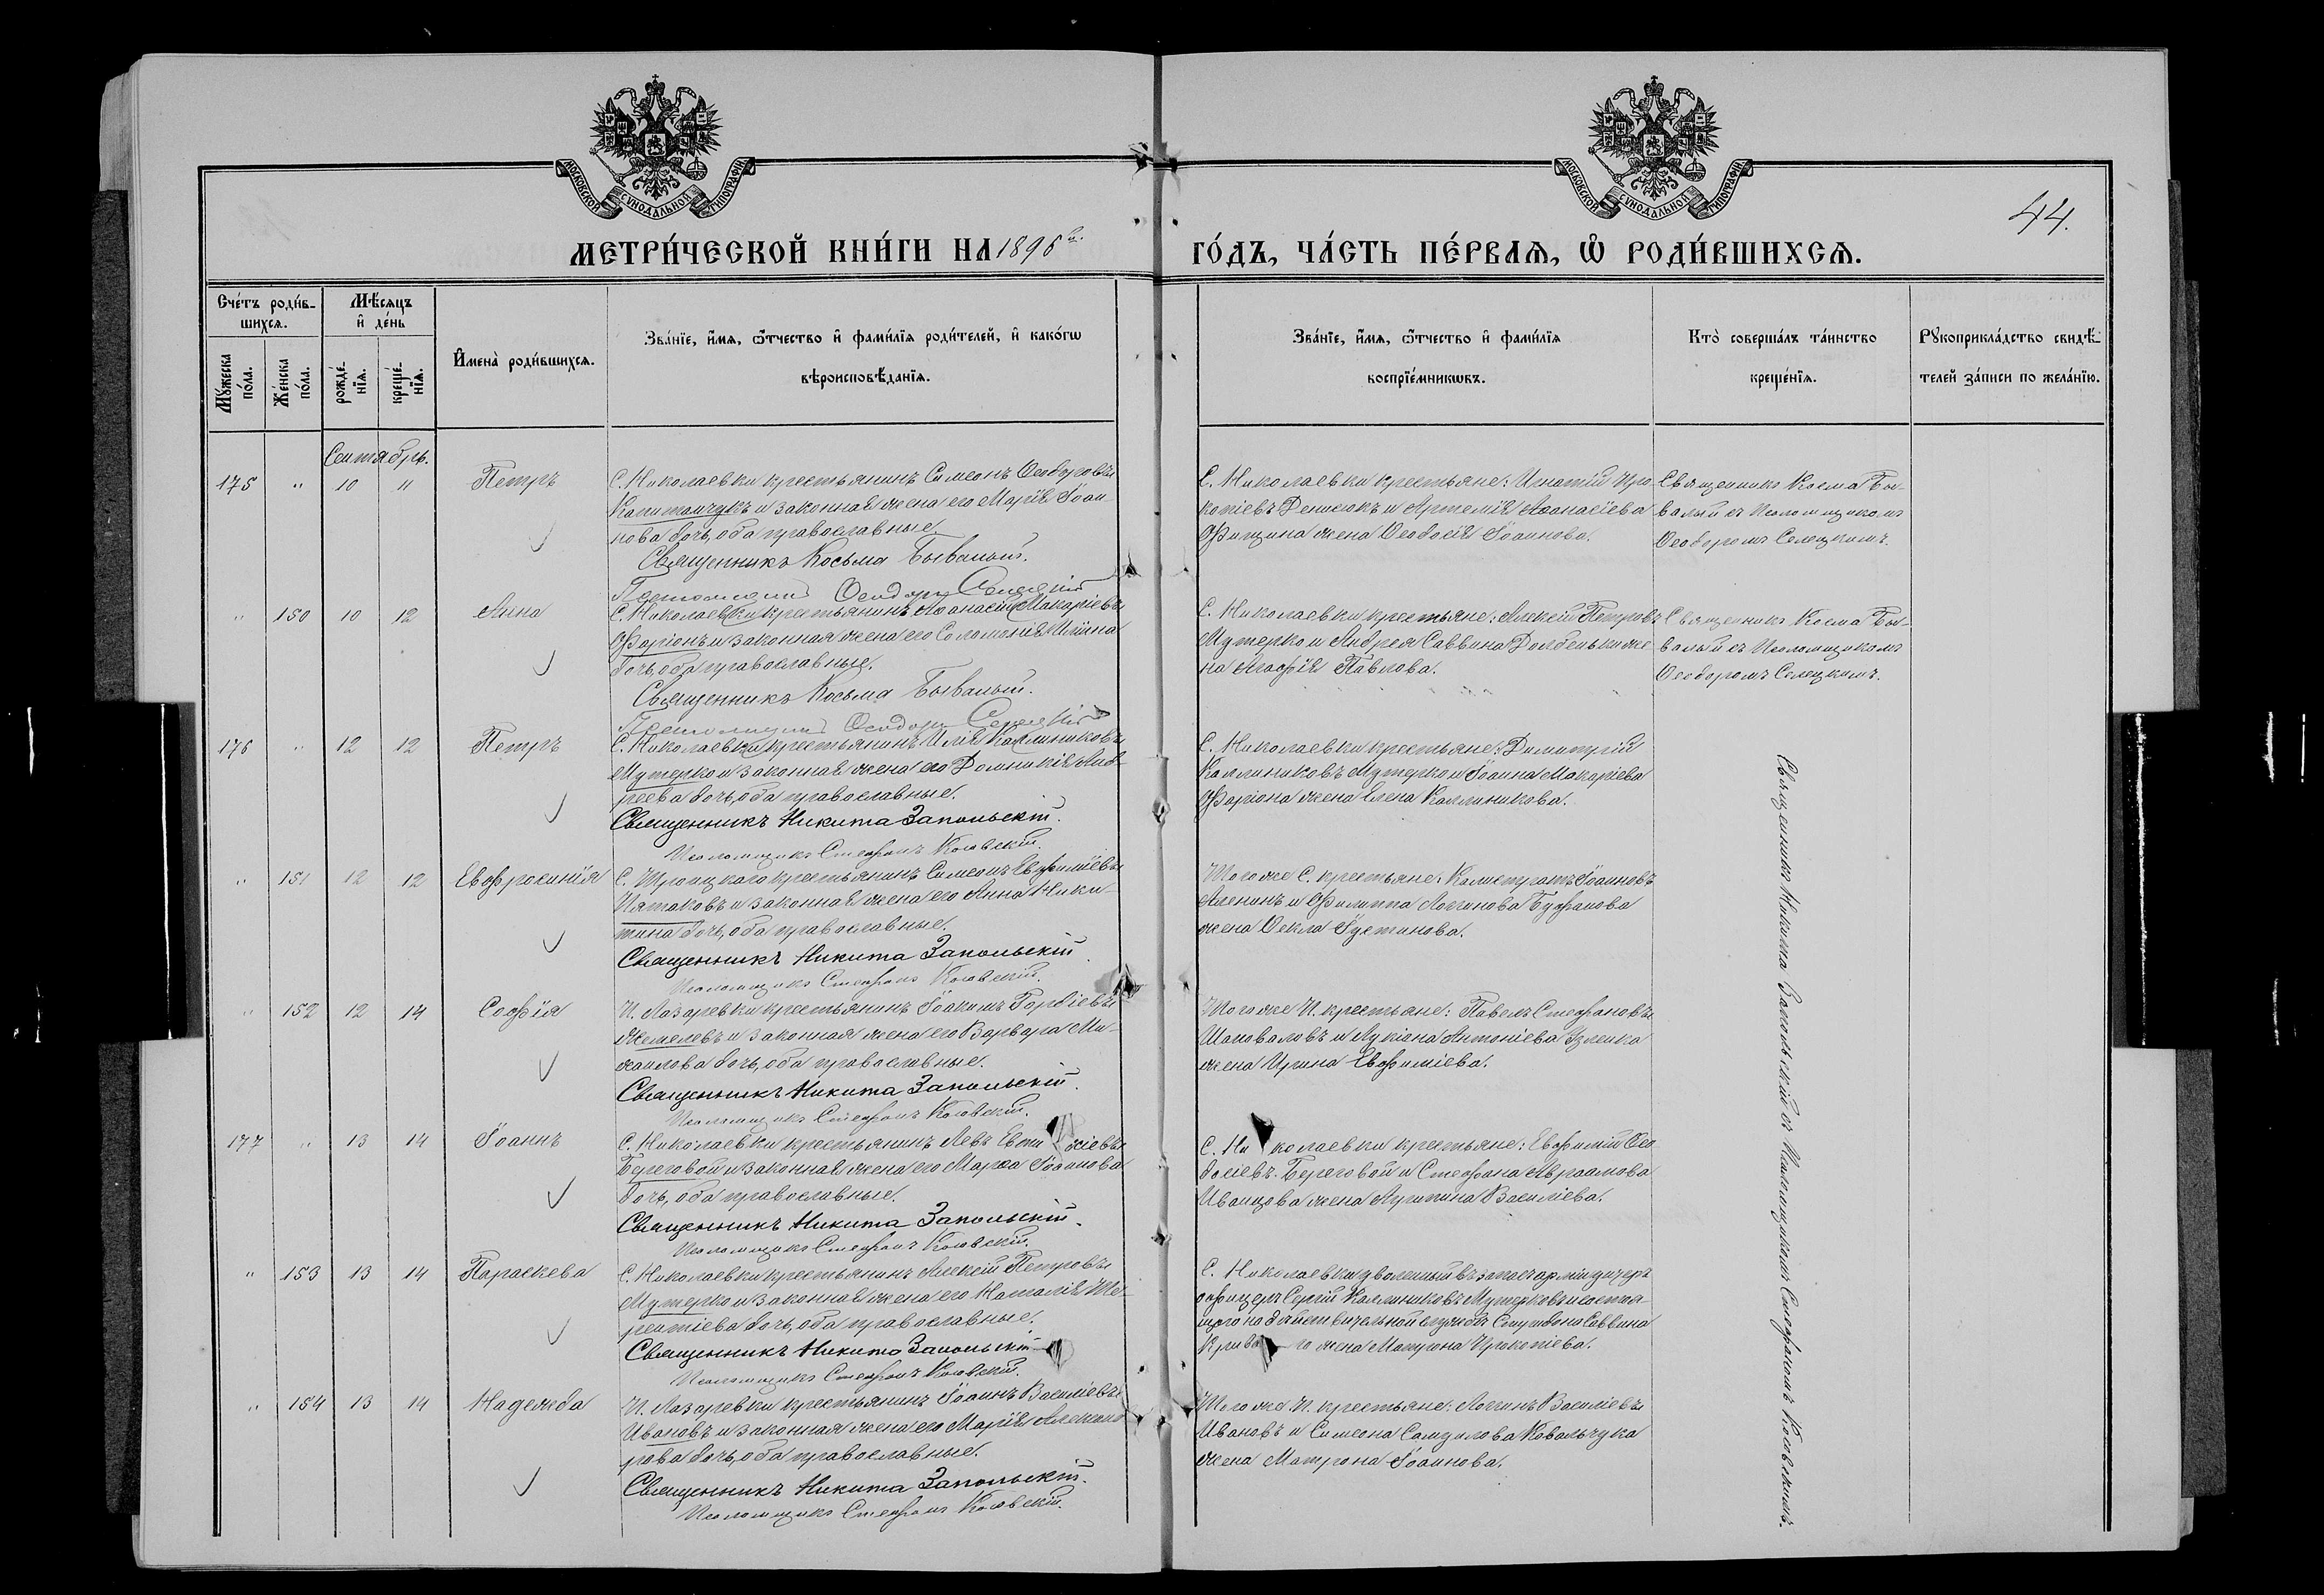 МОСКОВСКОЙ СѴНОДАЛЬНОЙ ТИПОГРАФІИ
МОСКОВСКОЙ СѴНОДАЛЬНОЙ ТИПОГРАФІИ
44.
МЕТРИ́ЧЕСКОЙ КНИ́ГИ НА 1896 г.
ГО́ДЪ, ЧА́СТЬ ПЕ́РВАЯ, Ѡ РОДИ́ВШИХСЯ.
Сче́тъ роди́в-
шихся.
Мѣ́сяцъ
и де́нь
Му́жеска по́ла.
Же́нска по́ла.
рожде́-нїя.
креще́-нїя.
Имена̀ роди́вшихся.
Зва́нїе, и́мя, ѻ́тчество и фами́лїя роди́телей, и како́гѡ
вѣроисповѣ́данїя.
Зва́нїе, и́мя, ѻ́тчество и фами́лїя
воспрїе́мникѡвъ.
Кто̀ соверша́лъ та́инство
креще́нїя.
Рукоприкла́дство свидѣ́-
телей за́писи по жела́нїю.
Сентябрь.
175 " 10 11 Петръ
С. Николаевки крестьянинъ Симеонъ Ѳеодоровъ
Капитанчукъ и законная жена его Марія Іоан-
нова дочь, оба православные.
Священникъ Косьма Бывалый.
Псаломщикъ Ѳеодоръ Селецкій
С. Николаевки крестьяне: Игнатій Про-
копіевъ Денисюкъ и Артемія Аѳанасіева
Фищина жена Ѳеодосія Іоаннова.
Священникъ Косма Бы-
валый съ Псаломщикомъ
Ѳеодоромъ Селецкимъ.
" 150 10 12 Анна
С. Николаевки крестьянинъ Аѳанасій Макаріевъ
Фаріонъ и законная жена его Соломонія Иліина
дочь, оба православные.
Священникъ Косьма Бывалый.
Псаломщикъ Ѳеодоръ Селецкій
С. Николаевки крестьяне: Алексій Петровъ
Мутерко и Андрея Саввина Долбеньки же-
на Агафія Павлова.
Священникъ Косма Бы-
валый съ Псаломщикомъ
Ѳеодоромъ Селецкимъ.
176 " 12 12 Петръ
С. Николаевки крестьянинъ Илія Каллиниковъ
Мутерко и законная жена его Домникія Анд-
реева дочь, оба православные.
Священникъ Никита Запольскій.
Псаломщикъ Стефанъ Косовскій.
С. Николаевки крестьяне: Димитрій
Каллиниковъ Мутерко и Іоанна Макаріева
Фаріона жена Елена Каллиникова.
Священникъ Никита Запольскій съ Псаломщикомъ Стефаномъ Косовскимъ.
" 151 12 12 Евфросинія
С. Троицкаго крестьянинъ Симеонъ Евфиміевъ
Пятаковъ и законная жена его Анна Ники-
тина дочь, оба православные.
Священникъ Никита Запольскій
Псаломщикъ Стефанъ Косовскій.
Тогоже С. крестьяне: Калистратъ Іоанновъ
Аленинъ и Филиппа Логинова Буфанова
жена Ѳекла Іустинова.
" 152 12 14 Софія
П. Лазаревки крестьянинъ Іоакимъ Гордіевъ
Жемелевъ и законная жена его Варвара Ми-
хаилова дочь, оба православные.
Священникъ Никита Запольскій.
Псаломщикъ Стефанъ Косовскій.
Тогоже П. крестьяне: Павелъ Стефановъ
Шаповаловъ и Лукіана Антоніева
жена Ирина Евфиміева.
177 " 13 14 Іоаннъ
С. Николаевки крестьянинъ Левъ Евти хіевъ
Береговой и законная жена его Марѳа Іоаннова
дочь, оба православные.
Священникъ Никита Запольскій.
Псаломщикъ Стефанъ Косовскій.
С. Ни колаевки крестьяне: Евфимій Ѳео-
досіевъ Береговой и Стефана Авраамова
Иванцова жена Агрипина Василіева.
" 153 13 14 Параскева
С. Николаевки крестьянинъ Алексій Петровъ
Мутерко и законная жена его Наталія Те-
рентіева дочь, оба православные.
Священникъ Никита Запольскій
Псаломщикъ Стефанъ Косовскій.
С. Николаевки уволенный въ запасъ арміи унтеръ
офицеръ Сергій Каллиниковъ Мутерковъ и состоя-
щаго на дѣйствительной службѣ Спиридона Саввина
Крива го жена Матрона Прокопіева.
" 154 13 14 Надежда
П. Лазаревки крестьянинъ Іоаннъ Василіевъ
Ивановъ и законная жена его Марія Алексан-
рова дочь, оба православные.
Священникъ Никита Запольскій.
Псаломщикъ Стефанъ Косовскій.
Тогоже П. крестьяне: Логинъ Василіевъ
Ивановъ и Симеона Самуилова Ковальчука
жена Матрона Іоаннова.